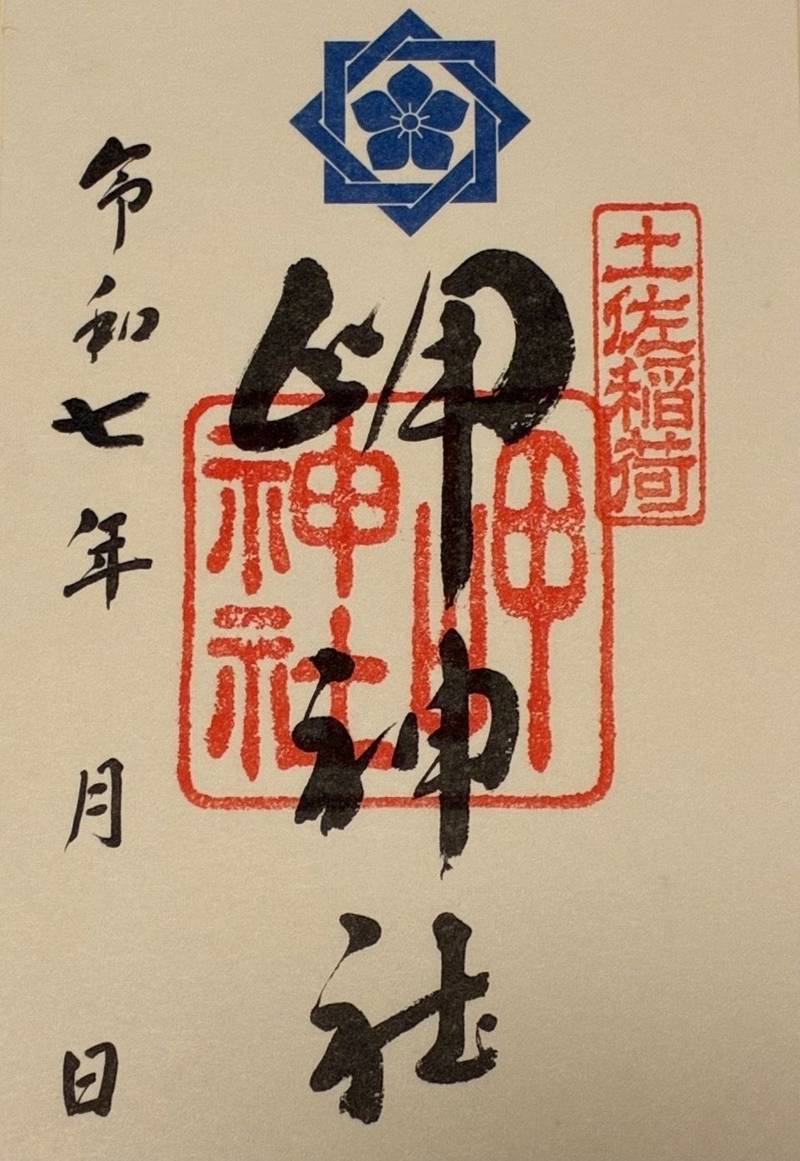 土佐稲荷
岬神社
岬
神社
令和七年 月 日